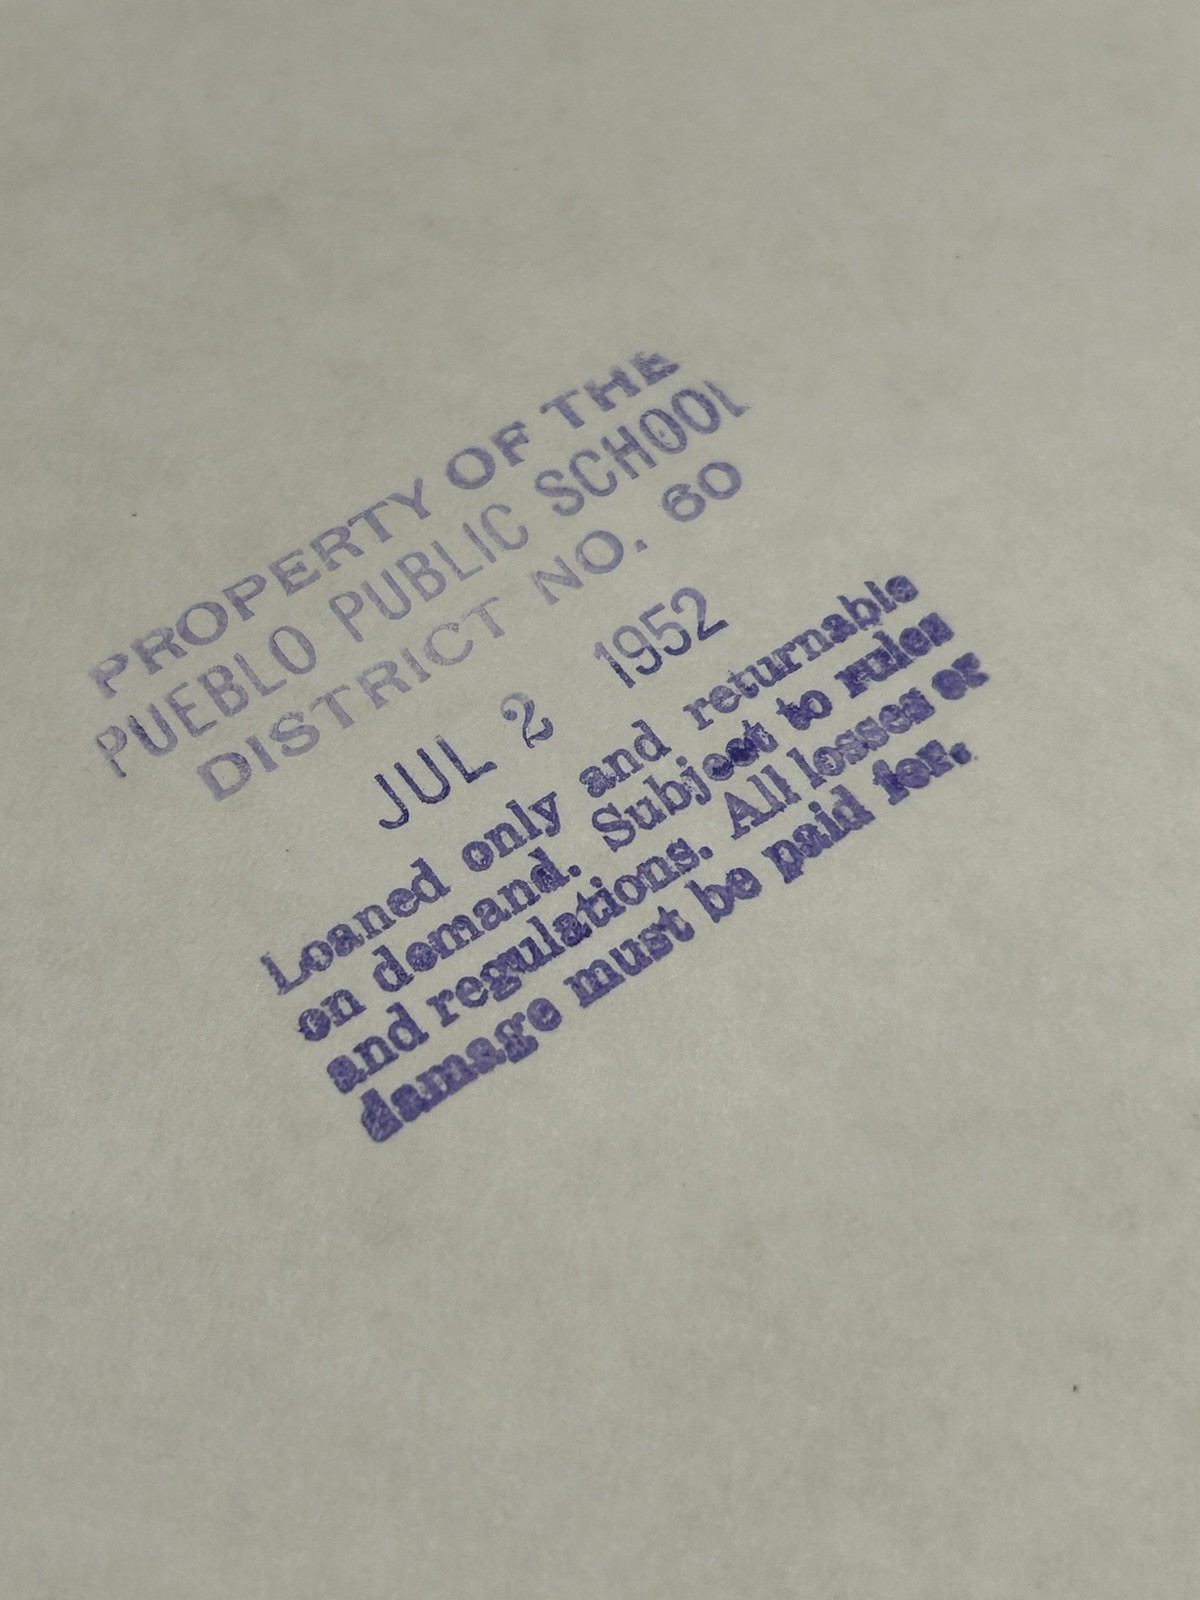 PROPERTY OF THE
PUEBLO PUBLIC SCHOOL
DISTRICT NO. 60
JUL 2 1952
Loaned only and returnable
on demand. Subject to rules
and regulations. All losses or
damage must be paid for.